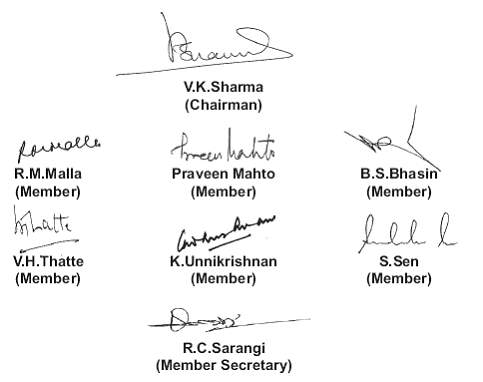 V.K.Sharma
(Chairman)
R.M.Malla Praveen Mahto B.S.Bhasin
(Member) (Member) (Member)
V.H.Thatte K.Unnikrishnan S.Sen
(Member) (Member) (Member)
R.C.Sarangi
(Member Secretary)